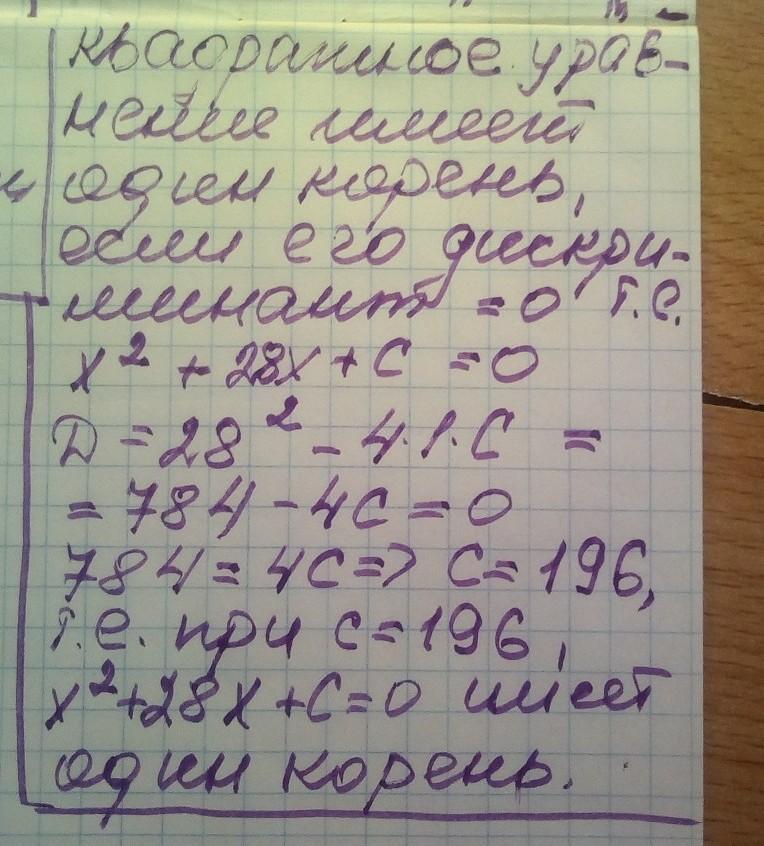 квадратное урав-
нение имеет
один корень,
если его дискри-
минант = 0 т.е.
x² + 28x + C = 0
D = 28² - 4·1·C =
= 784 - 4C = 0
784 = 4C => C = 196,
т.е. при c = 196,
x² + 28x + C = 0 имеет
один корень.